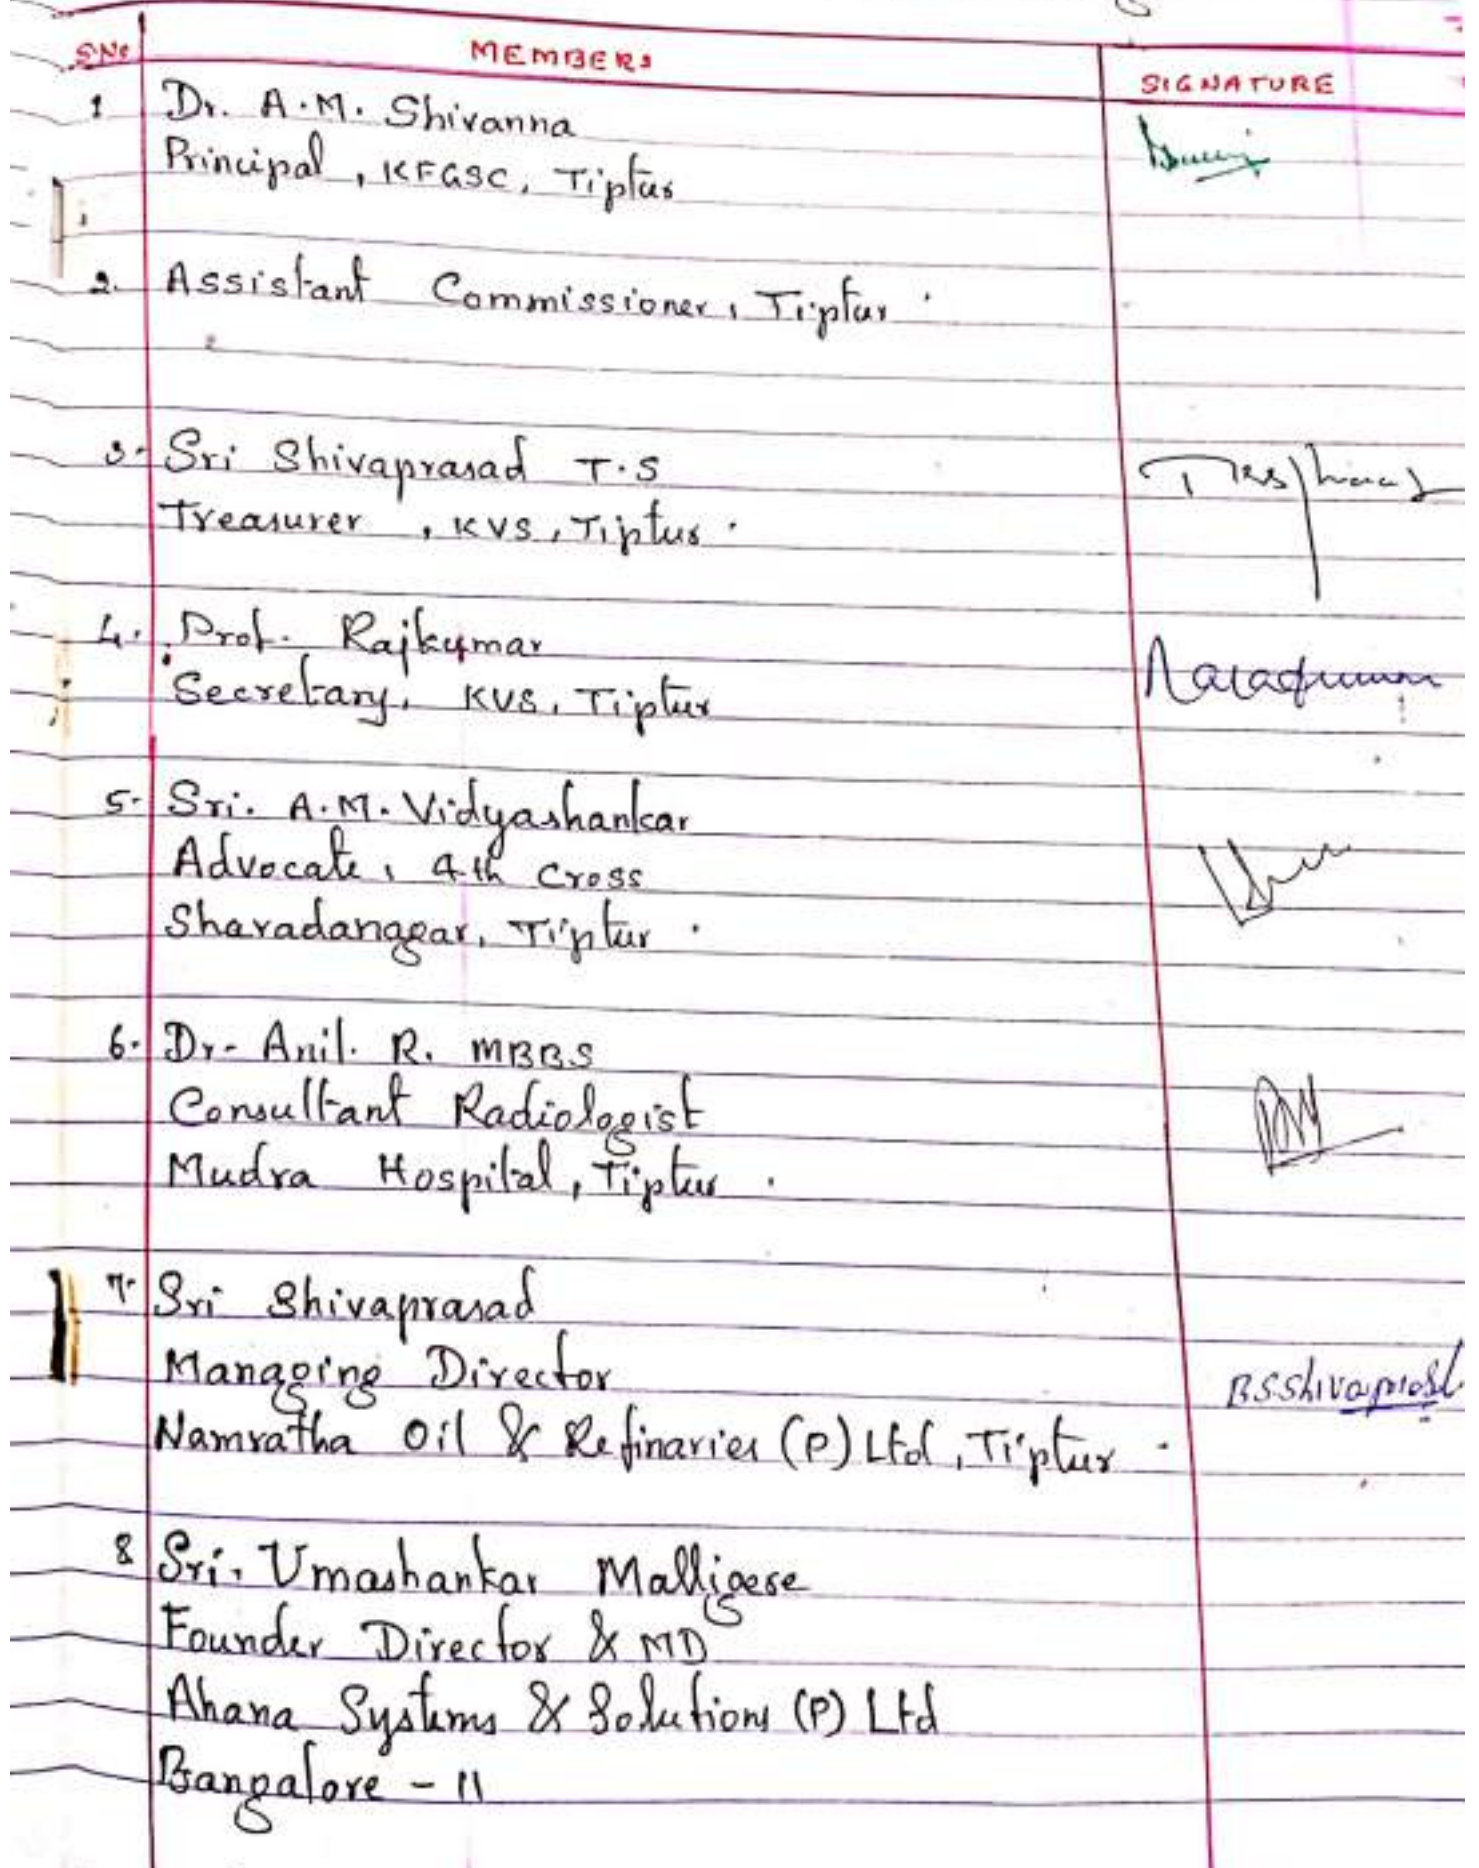 SNo MEMBERS SIGNATURE
1 Dr. A.M. Shivanna
Principal, KFGSC, Tiptur
2. Assistant Commissioner, Tiptur.
3. Sri Shivaprasad T.S
Treasurer, KVS, Tiptur.
4. Prof. Rajkumar
Secretary, KVS, Tiptur
5. Sri. A.M. Vidyashankar
Advocate, 4th Cross
Sharadanagar, Tiptur.
6. Dr. Anil. R. MBBS
Consultant Radiologist
Mudra Hospital, Tiptur.
7. Sri Shivaprasad
Managing Director
BSShivaprasad
Namratha Oil & Refinaries (P) Ltd, Tiptur.
8 Sri. Umashankar Malligere
Founder Director & MD
Ahana Systems & Solutions (P) Ltd
Bangalore - 11